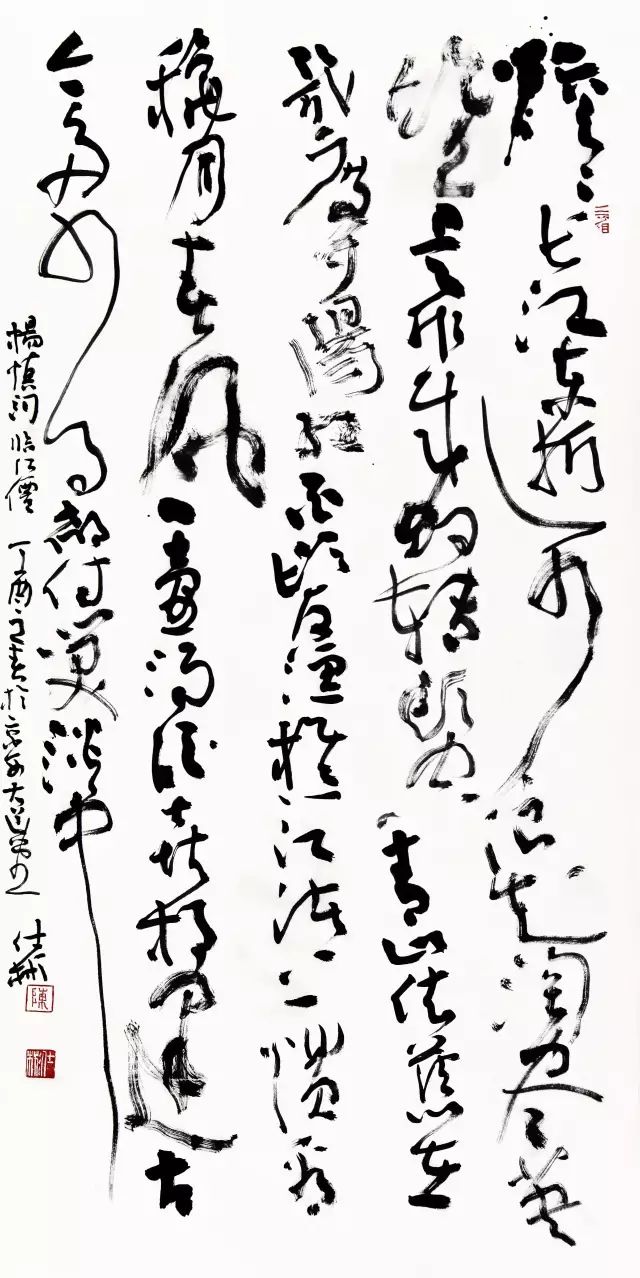 滚滚长江东逝水浪花淘尽英
雄是非成败转头空青山依旧在
几度夕阳红白发渔樵江渚上惯看
秋月春风一壶浊酒喜相逢古
今多少事都付笑谈中
楊慎詞臨江僊 丁酉 春於京 大道
陳